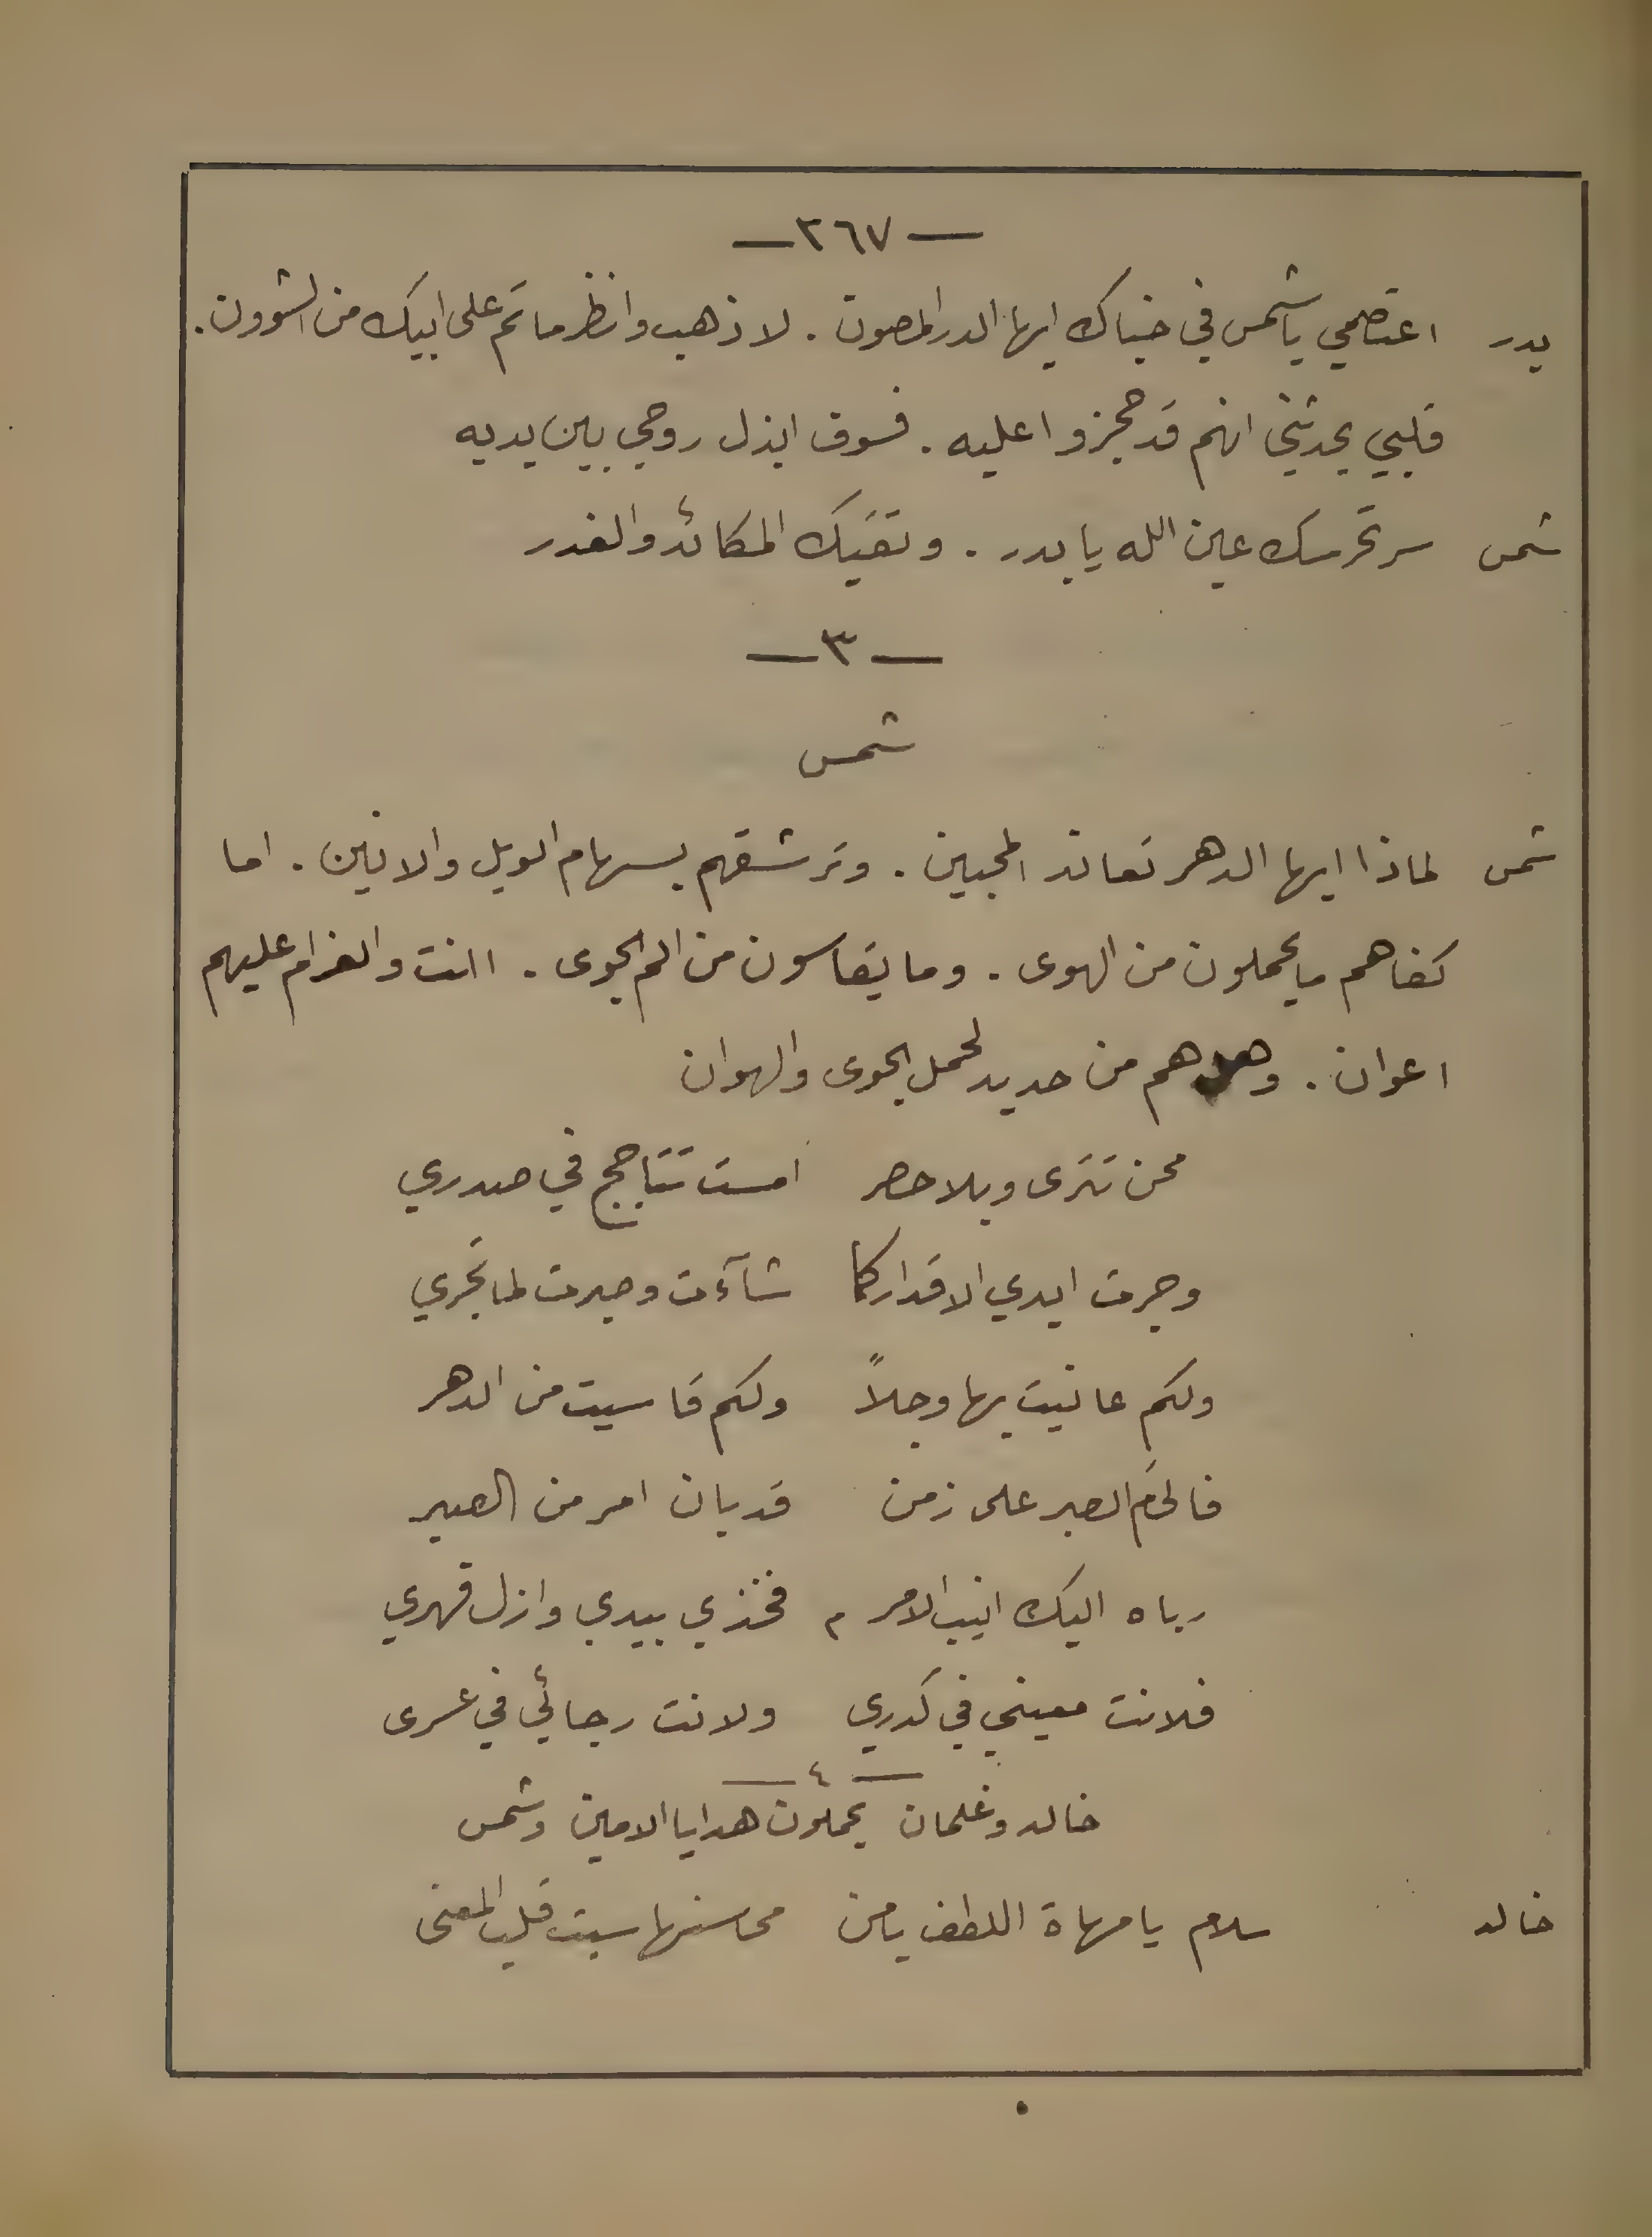 — ٢٦٧ —
بدر اعتصمي ياشمس في خباك ايها الدر المصون . لاذهب وانظر ماتم على ابيك من الشوون .
قلبي يحدثني انهم قد حجزوا عليه . فسوف ابذل روحي بين يديه
شمس سر تحرسك عين الله يا بدر . وتقيك المكائد والغدر
— ٣ —
شمس
شمس لماذا ايها الدهر تعاند المحبين . وترشقهم بسهام الويل والانين . اما
كفاهم ما يحملون من الهوى . وما يقاسون من الم الجوى . اانت والغرام عليهم
اعوان . وهل هم من حديد لحمل الجوى والهوان
محن تترى وبلا حصر امست تتاجج في صدري
وجرت ايدي الاقدار كما شآءت وصبرت لما تجري
ولكم عانيت بها وجلاً ولكم قاسيت من الدهر
فالحم الصبر على زمن قد بان امر من الصبر
رباه اليك انيب الامر م فخذي بيدي وازل قهري
فلانت معيني في كدري ولانت رجائي في عسرى
— ٤ —
خالد وغلمان يحملون هدايا الامين وشمس
خالد سلام يا مهاة اللطف يامن محاسنها سبت قلب المعنى